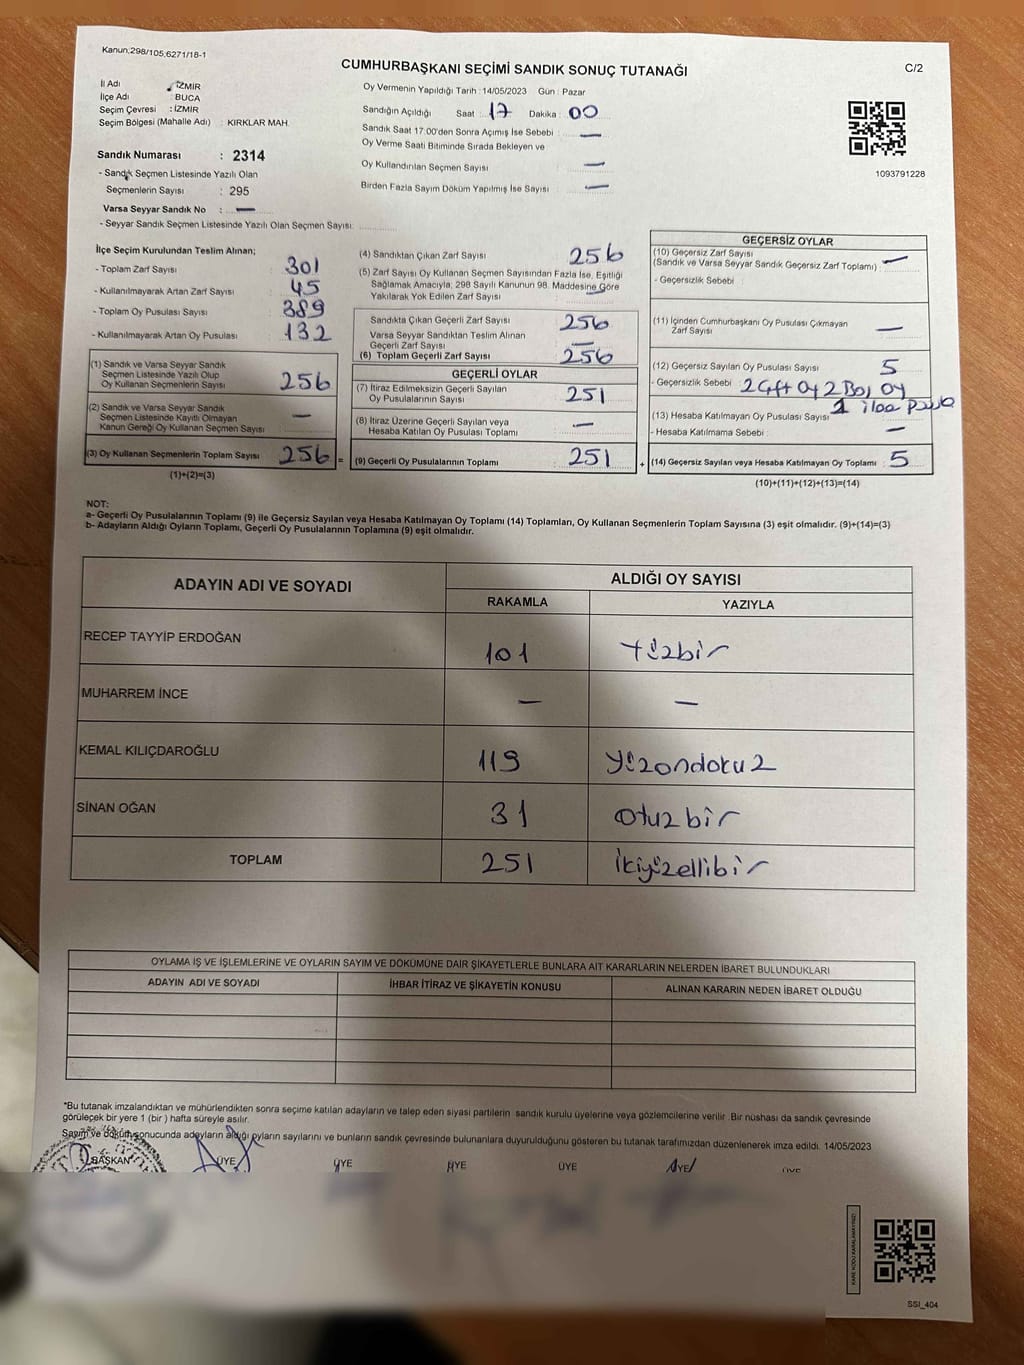 Kanun;298/105;6271/18-1
CUMHURBAŞKANI SEÇİMİ SANDIK SONUÇ TUTANAĞI
C/2
İl Adı : İZMİR
İlçe Adı : BUCA
Seçim Çevresi : İZMİR
Seçim Bölgesi (Mahalle Adı) : KIRKLAR MAH.
Oy Vermenin Yapıldığı Tarih : 14/05/2023 Gün : Pazar
Sandığın Açıldığı Saat : 17 Dakika : 00
Sandık Saat 17.00'den Sonra Açımış İse Sebebi : —
Oy Verme Saati Bitiminde Sırada Bekleyen ve
Oy Kullandırılan Seçmen Sayısı —
Birden Fazla Sayım Döküm Yapılmış İse Sayısı —
1093791228
Sandık Numarası : 2314
- Sandık Seçmen Listesinde Yazılı Olan
Seçmenlerin Sayısı : 295
Varsa Seyyar Sandık No : —
- Seyyar Sandık Seçmen Listesinde Yazılı Olan Seçmen Sayısı:
İlçe Seçim Kurulundan Teslim Alınan;
- Toplam Zarf Sayısı 301
- Kullanılmayarak Artan Zarf Sayısı : 45
- Toplam Oy Pusulası Sayısı : 389
- Kullanılmayarak Artan Oy Pusulası : 132
(1) Sandık ve Varsa Seyyar Sandık
Seçmen Listesinde Yazılı Olup
Oy Kullanan Seçmenlerin Sayısı 256
(2) Sandık ve Varsa Seyyar Sandık
Seçmen Listesinde Kayıtlı Olmayan
Kanun Gereği Oy Kullanan Seçmen Sayısı —
(3) Oy Kullanan Seçmenlerin Toplam Sayısı 256 =
(1)+(2)=(3)
(4) Sandıktan Çıkan Zarf Sayısı 256
(5) Zarf Sayısı Oy Kullanan Seçmen Sayısından Fazla İse, Eşitliği
Sağlamak Amacıyla, 298 Sayılı Kanunun 98. Maddesine Göre
Yakılarak Yok Edilen Zarf Sayısı —
Sandıkta Çıkan Geçerli Zarf Sayısı 256
Varsa Seyyar Sandıktan Teslim Alınan
Geçerli Zarf Sayısı —
(6) Toplam Geçerli Zarf Sayısı 256
GEÇERLİ OYLAR
(7) İtiraz Edilmeksizin Geçerli Sayılan
Oy Pusulalarının Sayısı 251
(8) İtiraz Üzerine Geçerli Sayılan veya
Hesaba Katılan Oy Pusulası Toplamı —
(9) Geçerli Oy Pusulalarının Toplamı 251 +
GEÇERSİZ OYLAR
(10) Geçersiz Zarf Sayısı
(Sandık ve Varsa Seyyar Sandık Geçersiz Zarf Toplamı) : —
- Geçersizlik Sebebi :
(11) İçinden Cumhurbaşkanı Oy Pusulası Çıkmayan
Zarf Sayısı —
(12) Geçersiz Sayılan Oy Pusulası Sayısı 5
- Geçersizlik Sebebi : 2 Çift Oy 2 Boş Oy
1
(13) Hesaba Katılmayan Oy Pusulası Sayısı
- Hesaba Katılmama Sebebi : —
(14) Geçersiz Sayılan veya Hesaba Katılmayan Oy Toplamı : 5
(10)+(11)+(12)+(13)=(14)
NOT:
a- Geçerli Oy Pusulalarının Toplamı (9) ile Geçersiz Sayılan veya Hesaba Katılmayan Oy Toplamı (14) Toplamları, Oy Kullanan Seçmenlerin Toplam Sayısına (3) eşit olmalıdır. (9)+(14)=(3)
b- Adayların Aldığı Oyların Toplamı, Geçerli Oy Pusulalarının Toplamına (9) eşit olmalıdır.
ADAYIN ADI VE SOYADI ALDIĞI OY SAYISI
RAKAMLA YAZIYLA
RECEP TAYYİP ERDOĞAN 101 yüzbir
MUHARREM İNCE — —
KEMAL KILIÇDAROĞLU 119 yüzondokuz
SİNAN OĞAN 31 otuzbir
TOPLAM 251 ikiyüzellibir
OYLAMA İŞ VE İŞLEMLERİNE VE OYLARIN SAYIM VE DÖKÜMÜNE DAİR ŞİKAYETLERLE BUNLARA AİT KARARLARIN NELERDEN İBARET BULUNDUKLARI
ADAYIN ADI VE SOYADI İHBAR İTİRAZ VE ŞİKAYETİN KONUSU ALINAN KARARIN NEDEN İBARET OLDUĞU
*Bu tutanak imzalandıktan ve mühürlendikten sonra seçime katılan adayların ve talep eden siyasi partilerin sandık kurulu üyelerine veya gözlemcilerine verilir. Bir nüshası da sandık çevresinde
görülecek bir yere 1 (bir ) hafta süreyle asılır.
Sayım ve döküm sonucunda adayların aldığı oyların sayılarını ve bunların sandık çevresinde bulunanlara duyurulduğunu gösteren bu tutanak tarafımızdan düzenlenerek imza edildi. 14/05/2023
BAŞKAN ÜYE ÜYE ÜYE ÜYE ÜYE ÜYE
KARE KODU KARALAMAYINIZ!
SSI_404